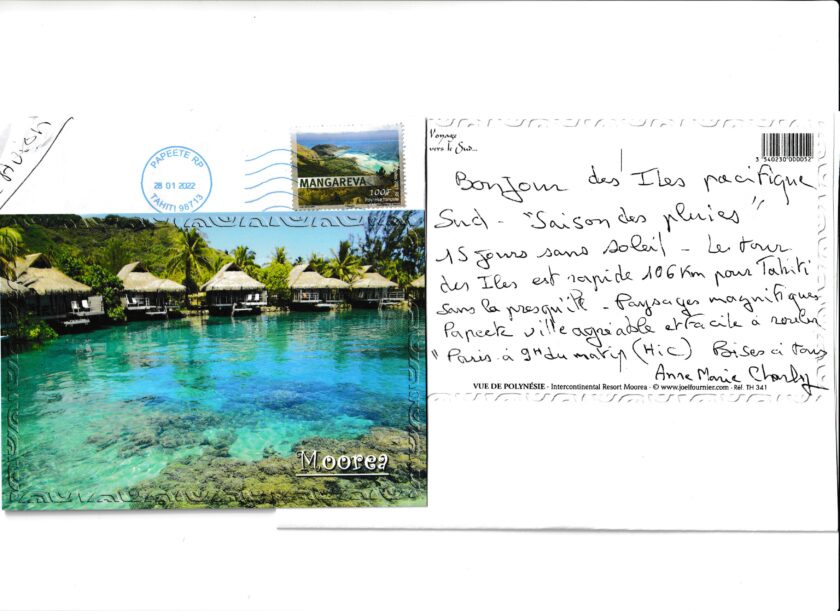 PAPEETE RP
28 01 2022
TAHITI 98713
MANGAREVA
100F
Polynésie française
Moorea
Voyage
vers le Sud...
3 540230 000052
Bonjour des Iles pacifique
Sud - "Saison des pluies"
15 jours sans soleil - Le tour
des Iles est rapide 106 Km pour Tahiti
sans la presqu'île - Paysages magnifiques
Papeete ville agréable et facile à rouler
"Paris à 9H du matin (Hic) Bises à tous
Anne Marie Charly
VUE DE POLYNÉSIE - Intercontinental Resort Moorea - © www.joelfournier.com - Réf. TH 341